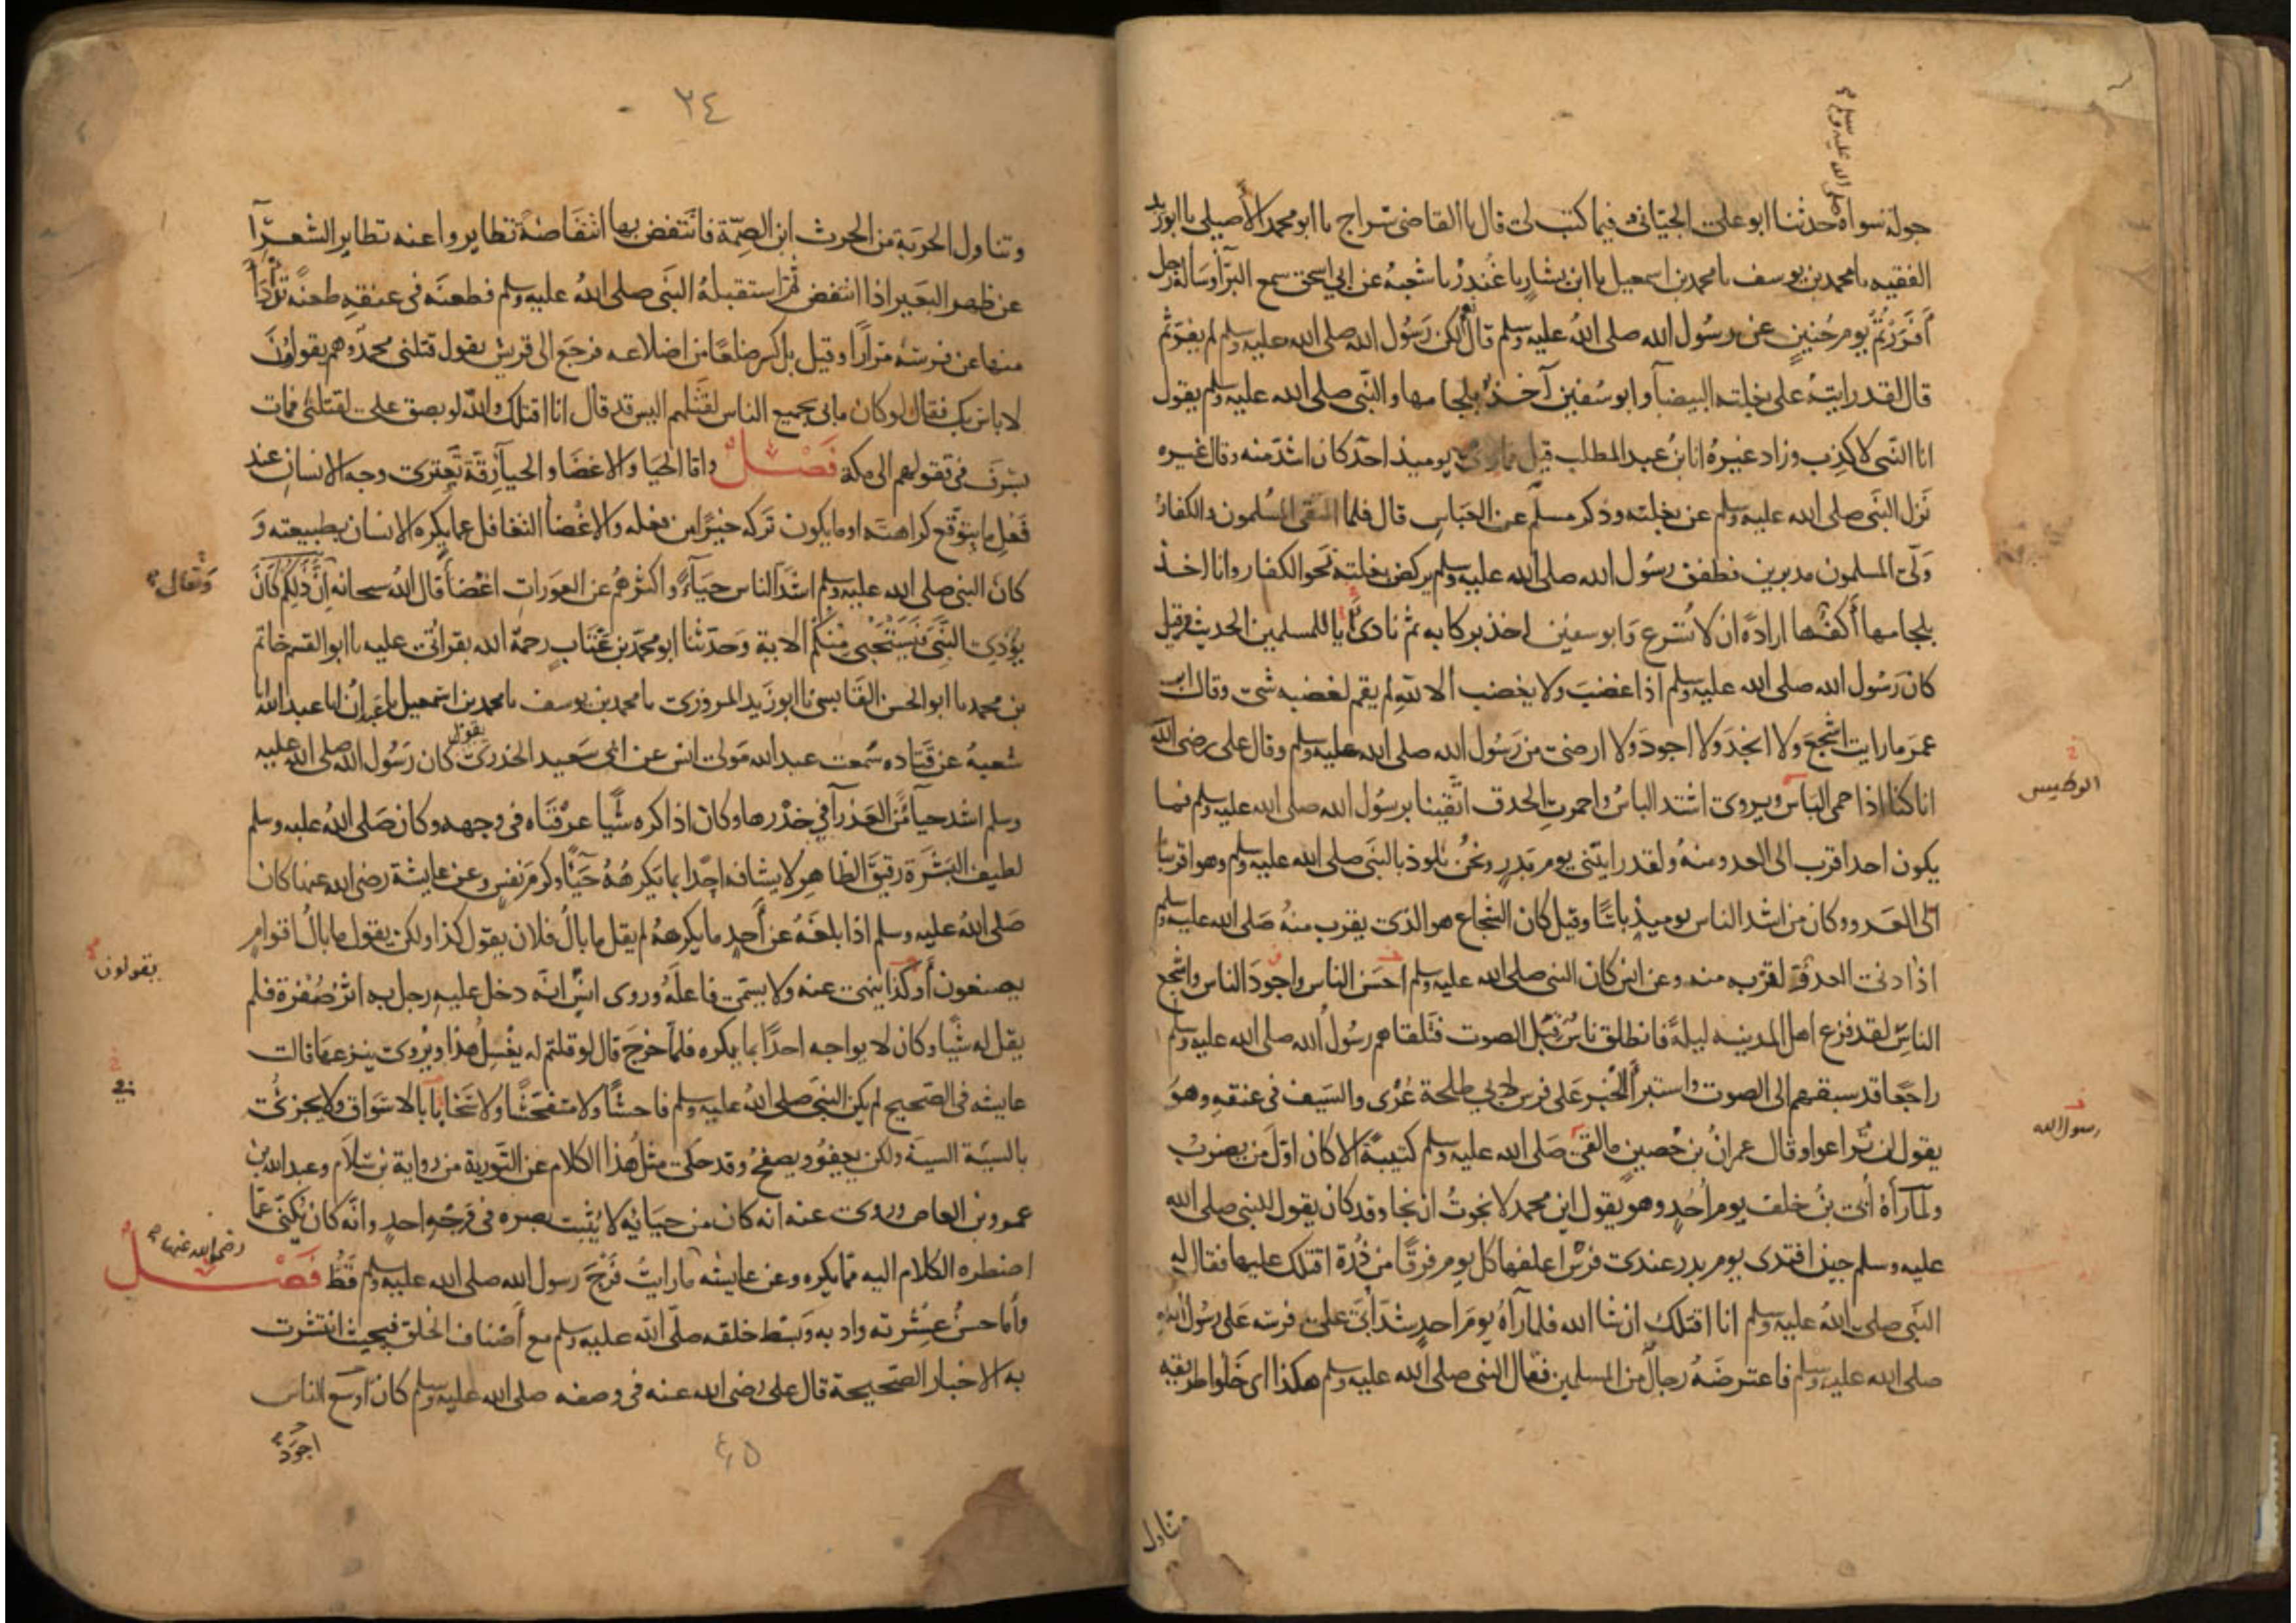 صلى الله عليه وسلم
جولة سواه حدثنا ابو على الجيّانى فيما كتب لى قال نا القاضى سراج نا ابو محمد الأصيلى نا ابو زيد
الفقيه نا محمد بن يوسف نا محمد بن اسمعيل نا ابن بشار نا غُندرٌ نا شعبهُ عن ابى اسحق سمع البرآ وساله رجل
أفَرَرْتُمْ يوم حُنينٍ عن رسُول الله صلى اللهُ عليه وسلم قال لكن رَسُول الله صلى الله عليه وسلم لم يفرّ ثم
قال لقد رايتهُ على بغلته البيضآ وابو سُفين آخذ بلجامها والنّبى صلى الله عليه وسلم يقول
انا النّبى لا كذب وزاد غيرهُ انا ابنُ عبد المطلب قيل فما يوميذ احدٌ كان اشدّ منه وقال غيره
نَزل النّبى صلى الله عليه وسلم عن بغلته وذكر مسلم عن العبّاسِ قال فلمّا التقى المُسلمون والكفارُ
ولّى المسلمون مدبرين فطفق رسُول الله صلى الله عليه وسلم يركض بغلته نحو الكفار وانا اخذ
بلجامها أكفّها ارادةً ان لا تُسرع وَابو سفين اخذ بركابه ثم نادى يا للمسلمين الحديث وقيل
كان رَسُول الله صلى الله عليه وسلم اذا غضبَ ولا يغضب ألا للهِ لم يقم لغضبه شى وقال ابن
عمرَ ما رايت اشجعَ ولا انجدَ ولا اجودَ ولا ارضى من رَسُول الله صلى الله عليه وسلم وقال على رضى الله
انا كنا اذا حمى البَأس ويروى اشتد الباسُ واحمرتِ الحدق اتّقينا برسُول الله صلى الله عليه وسلم فما
الوطيس
يكون احد اقرب الى العدو منهُ ولقد رايتنى يوم بَدرٍ ونحنُ نلوذ بالنبّى صلى الله عليه وسلم وهو اقربنا
الى العَدو وكان من اشد الناس يوميذٍ باسًا وقيل كان الشجاع هو الذى يقرب منهُ صَلى الله عليه وسلم
اذا دنى العدوّ لقربه منه وعن انس كان النبى صلى الله عليه وسلم احسَن الناس واجودَ الناس واشجع
الناسِ لقد فزع اهل المدينه ليلةً فانطلق ناسٌ قبَل الصوت فتلقاهم رسُولُ الله صلى الله عليه وسلم
راجعًا قد سبقهم الى الصوت واستبرأ الخبر على فرس لابى طلحة عُرْى والسّيف فى عنقهِ وهوَ
يقول لن تُراعوا وقال عمرانُ بن حُصينٍ ما لقى صَلى الله عليه وسلم كتيبةً الا كان اوّل من يضربُ
رسول الله
ولمّا رآهُ أبىّ بنُ خلف يوم اُحُدٍ وهو يقول اين محمد لا نجوتُ ان نجا وقد كان يقول للنبى صلى الله
عليه وسلم حين افتدى يوم بدر عندى فرسٌ اعلفها كل يوم فرقًا من ذُرة اقتلك عليها فقال له
النّبى صلى اللهُ عليه وسلم انا اقتلك ان شا الله فلما رآهُ يومَ احدٍ شدّ ابىّ على فرسه عَلى رسُول الله
صلى الله عليه وسلم فاعترضَهُ رجالٌ من المسلمين فقال النبى صلى الله عليه وسلم هكذا اى خَلّوا طريقه
وتناول
٢٤
وتناول الحربة من الحرث ابن الصِمّة فانتفض بها انتفاضةً تطايروا عنه تطاير الشعرآ
عن ظهر البعير اذا انتفض ثمّ استقبلهُ النّبى صلى اللهُ عليه وسلم فطعنَه فى عنقهِ طعنةً تدأدأ
منها عن فرسه مرارًا وقيل بل كسر ضلعًا من اضلاعه فرجعَ الى قريش يقول قتلنى محمدٌ وهم يقولون
لا باس بك فقال لو كان مابى بجميع الناس لقتلهم اليس قد قال انا اقتلك والله لو بصق علىّ لقتلنى فمات
بسَرِفَ فى قفولهم الى مكة فَصْل وامّا الحَيا والاغضَا والحيآ رِقّةٌ تَعترى وجه الانسان عند
فعْلِ ما يتوقّع كراهته او ما يكون تركه خيرًا من فعله والاغْضا التغافل عما يكره الانسان بطبيعته وَ
كان النبى صلى الله عليه وسلم اشدّ الناس حيَآءً واكثرهُم عن العورات اغْضاً قال اللهُ سبحانه إنّ ذَلِكُمْ كَانَ
وَتعالى
يُؤْذِى النَّبِىَّ فَيَسْتَحْيِى مِنْكُمْ الاية وَحدّثنا ابو محمّد بن عتّابٍ رحمهُ الله بقراتى عليه نا ابو القسم حاتم
بن محمد نا ابو الحسن القابسى نا ابو زَيد المروزى نا محمد بن يوسف نا محمد بن اسمعيل نا عَبدانُ انا عبد الله انا
شعبهُ عن قتاده سمعت عبد الله مَولى انس عن ابى سَعيد الخدرىّ يقول كان رَسُول الله صلى الله عليه
وسلم اشد حيآءً من العذرآ فى خدْرها وكان اذا كره شيًا عرفناه فى وجهه وكان صَلى اللهُ عليه وسلم
لطيف البَشَرَة رقيقَ الظاهر لا يشافه احدًا بما يَكرههُ حَيَآءً وكرمَ نفسٍ وعن عايشة رضى الله عنها كان
صَلى اللهُ عليه وسلم اذا بلغَهُ عن أحدٍ ما يكرههُ لم يقل ما بالُ فلان يقول كذا ولكن يقول ما بالُ اقوامٍ
يصنعون أو كذا ينهى عنه ولا يسمّى فاعلَهُ وروى انسٌ انّه دخل عليهِ رجل به اثرُ صُفرة فلم
يقولون
يقل له شيًا وكان لا يواجه احدًا بما يكره فلمّا خرجَ قال لو قلتم له يغْسِل هذا ويُرْوى ينزعها قالت
عايشه فى الصّحيح لم يكن النبىّ صلى اللهُ عليه وسلم فاحشًا ولا متفحّشًا ولا سَخّابًا بالاسَواق ولا يجزئ
فى
بالسيّة السيّة ولكن يعفُو ويصفحُ وقد حكى مثلُ هذا الكلام عن التّورية من رواية بن سَلام وعبد الله بن
عمرو بن العاص وروى عنه انه كان من حيَائه لا يُثبت بصره فى وَجْهِ احدٍ وانّه كان يُكنّى عمّا
اضطره الكلام اليه ممّا يكره وعن عايشه ما رايتُ فرْجَ رسول الله صلى الله عليه وسلم قَطُّ فَصْل
رضى الله عنها
وامّا حسنُ عِشرته وادبه وبَسْط خلقه صلّى الله عليه وسلم مع أصْناف الخلق فبحيث انتشرت
به الاخبار الصّحيحة قال على رضى الله عنه فى وصفه صلى الله عليه وسلم كان اوسع الناس
اجوَد